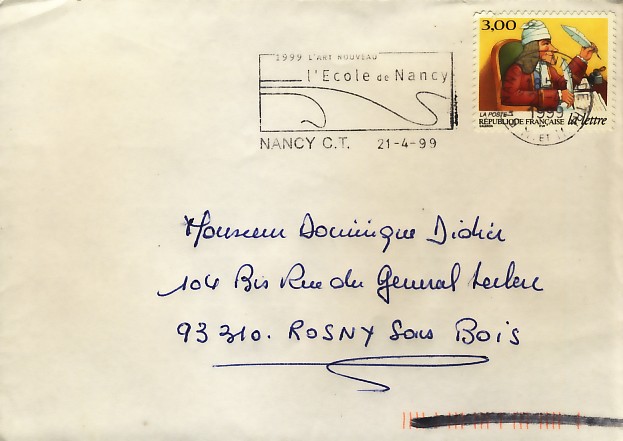 3,00
1999 L'ART NOUVEAU
l'Ecole de Nancy
LA POSTE
1999
RÉPUBLIQUE FRANÇAISE la lettre
NANCY C.T. 21-4-99
Monsieur Dominique Didier
104 Bis Rue du General Leclerc
93310. ROSNY Sous Bois